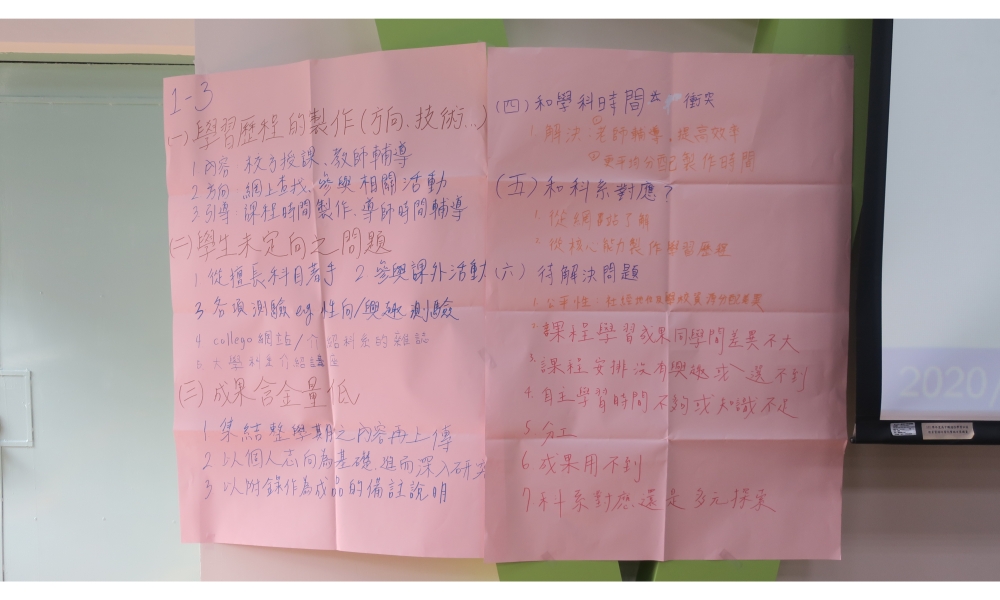 1-3
(一)學習歷程的製作(方向、技術...)
1 內容 校方授課、教師輔導
2 方向 網上查找、參與相關活動
3 引導 課程時間製作、導師時間輔導
(二)學生未定向之問題
1 從擅長科目著手 2 參與課外活動
3 各項測驗 eg 性向/興趣測驗
4 collego網站/介紹科系的雜誌
5 大學科系介紹講座
(三)成果含金量低
1 集結整學期之內容再上傳
2 以個人志向為基礎,進而深入研究
3 以附錄作為成品的備註說明
(四)和學科時間 衝突
1. 解決:①老師輔導、提高效率
②更平均分配製作時間
(五)和科系對應?
1. 從網站了解
2. 從核心能力製作學習歷程
(六)待解決問題
1. 公平性:社經地位及學校資源分配差異
2. 課程學習成果同學間差異不大
3. 課程安排沒有興趣或選不到
4. 自主學習時間不夠或知識不足
5. 分工
6 成果用不到
7 科系對應還是多元探索
2020